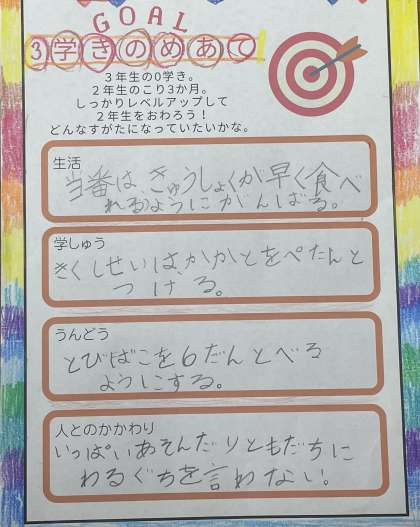 GOAL
3学きのめあて
3年生の0学き。
2年生のこり3か月。
しっかりレベルアップして
2年生をおわろう！
どんなすがたになっていたいかな。
生活
当番は、きゅうしょくが早く食べ
れるようにがんばる。
学しゅう
きくしせいは、かかとをぺたんと
つける。
うんどう
とびばこを6だんとべる
ようにする。
人とのかかわり
いっぱいあそんだりともだちに
わるぐちを言わない。